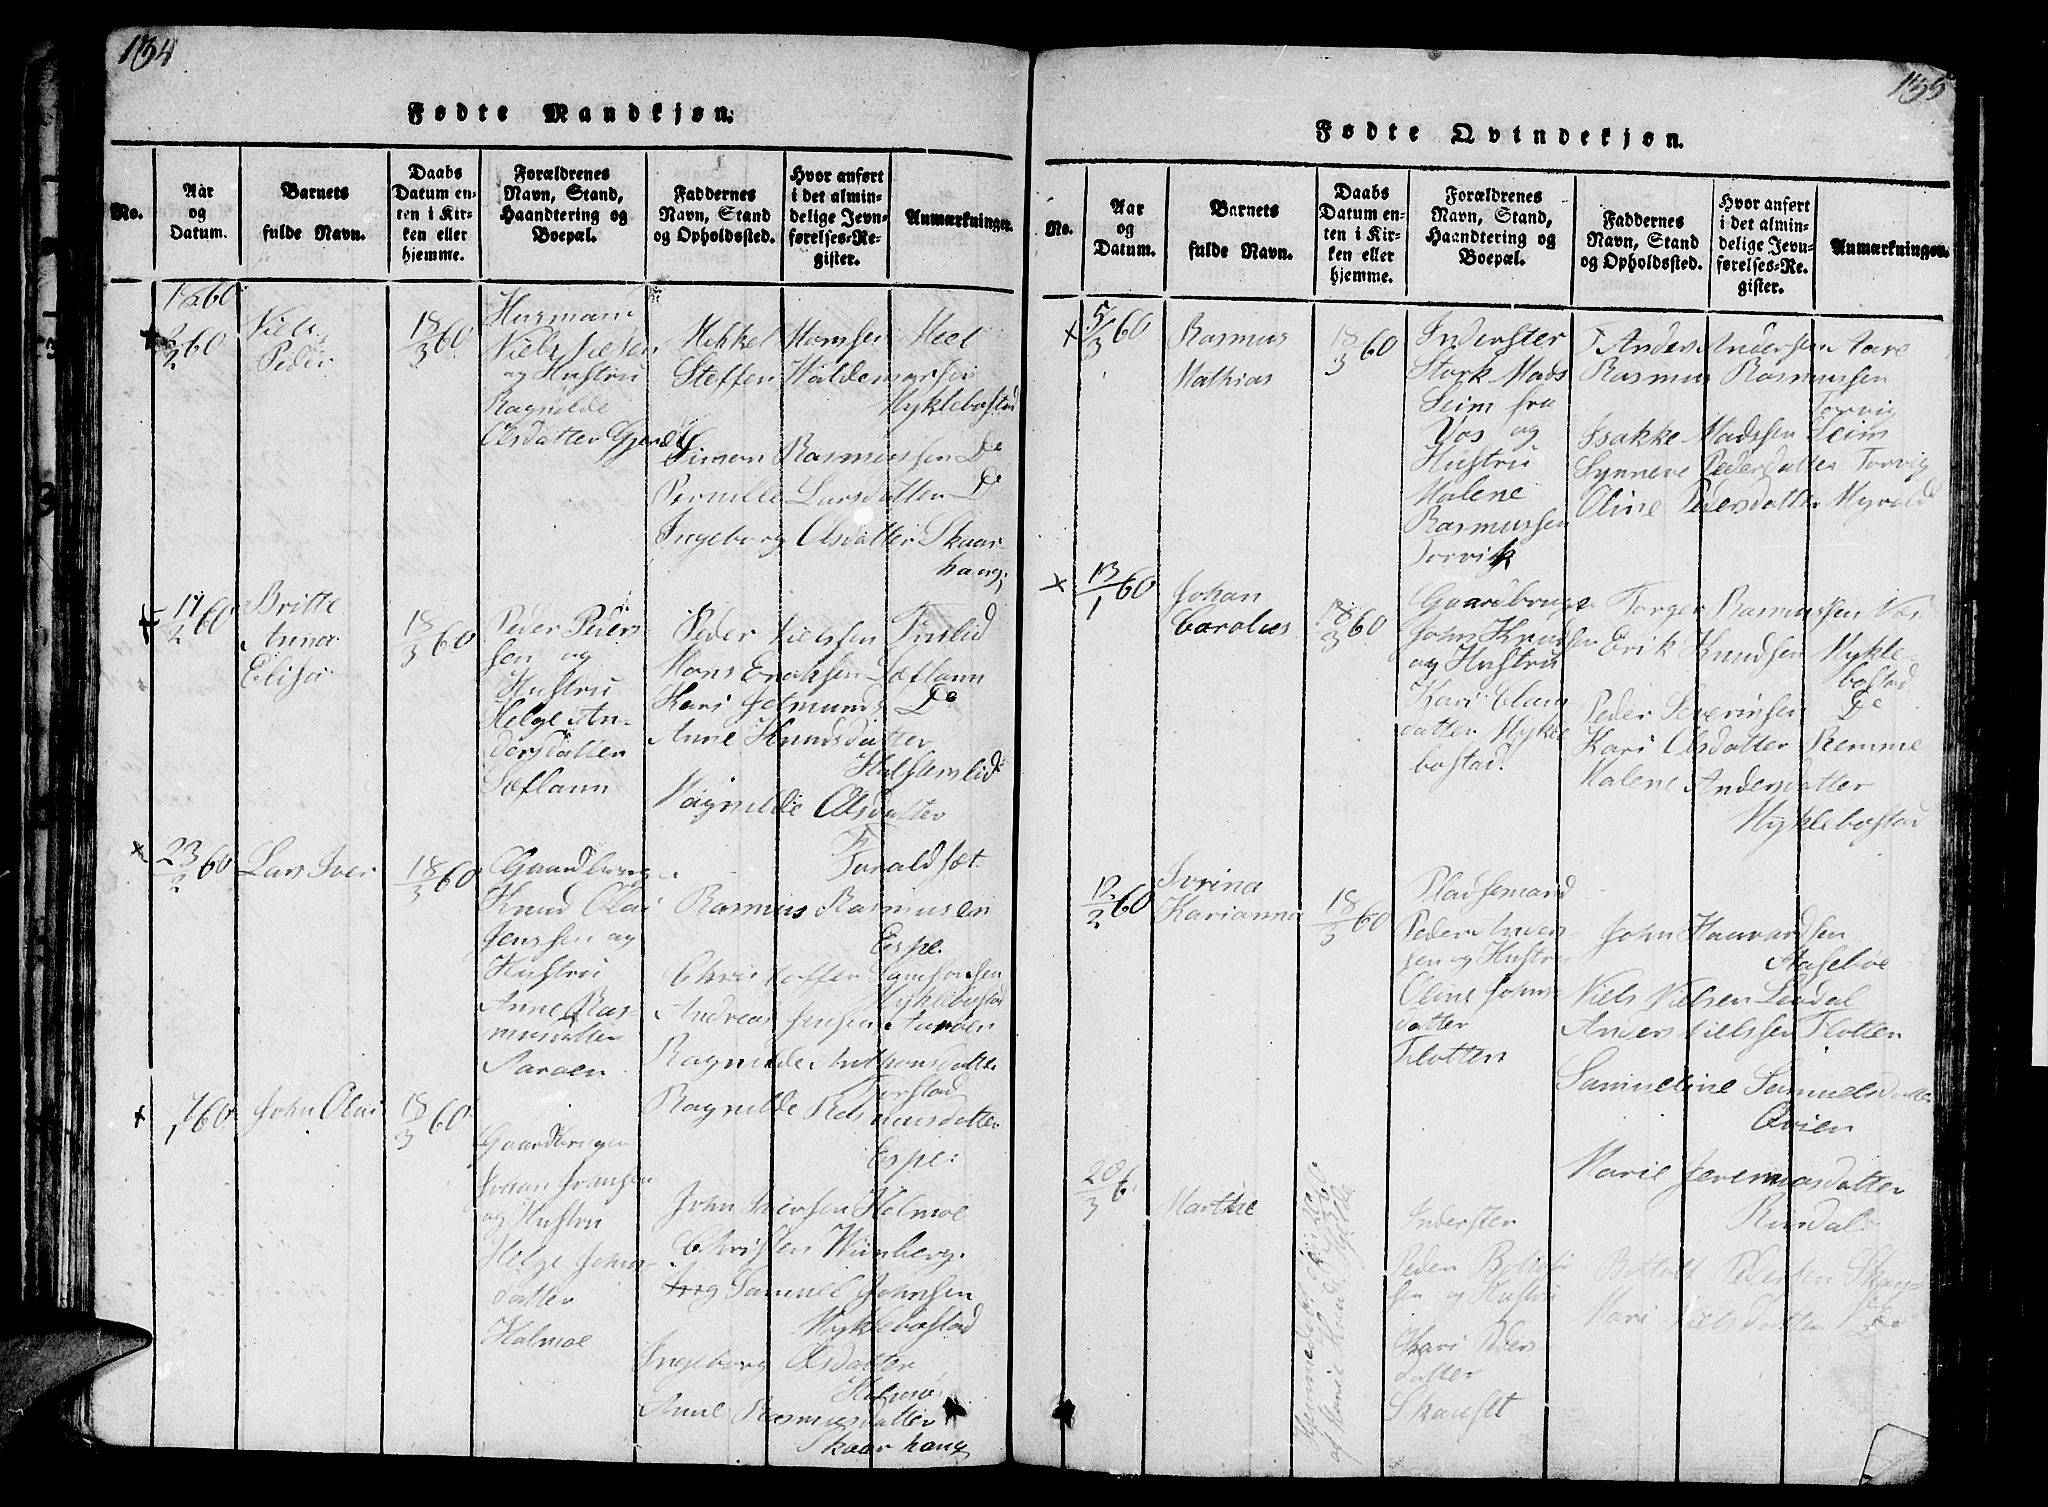 134
Fødte Mandkjøn.
No.
Aar og Datum.
Barnets fulde Navn.
Daabs Datum enten i Kirken eller hjemme.
Forældrenes Navn, Stand, Haandtering og Boepæl.
Faddernes Navn, Stand og Opholdssted.
Hvor anført i det almindelige Jevnførelses-Register.
Anmærkninger.
1860
+ 2/2 60
Niels
Peder
18/3 60
Husmand
Niels
og Hustru
Ragnilde
Olsdatter
Mikkel Hansen
Steffen Waldemarsen
Myklebostad
Simon Rasmussen De
Pernille Larsdatter De
Ingeborg Olsdatter Skaar-
haug.
+ 17/2 60
Britte
Anna
Elisa
18/3 60
Peder Peder
sen og
Hustru
Helge An-
dersdatter
Sæfland
Peder Nielssen
Mons Eriksen Sæfland
Kari De
Anne Knudsdatter
Ragnilde Olsdatter
x 23/2 60
Lars Iver
18/3 60
Gaardbruger
Knud Olai
Jenssen og
Hustru
Anne Ras-
musdatter
Rasmus Rasmusen
Espe.
Christoffer Samsonsen
Myklebostad
Andreas Jensen
Ragnilde Anthonsdatter
Ragnilde Rasmusdatter
Espe.
x 7/1 60
John Olai
18/3 60
Gaardbruger
Johan Johnsen
og Hustru
Helge Johns
datter
Holmøe
John Iversen Holmøe
Christen Wienberg.
Samuel Johnsen
Myklebostad
Ingeborg Olsdatter
Anne Rasmusdatter
Skaarhaug
135
Fødte Qvindekjøn.
No.
Aar og Datum.
Barnets fulde Navn.
Daabs Datum enten i Kirken eller hjemme.
Forældrenes Navn, Stand, Haandtering og Boepæl.
Faddernes Navn, Stand og Opholdssted.
Hvor anført i det almindelige Jevnførelses-Register.
Anmærkninger.
x 5/3 60
Rasmus
Mathias
18/3 60
Inderster
Mads
Seim fra
Vos og
Hustru
Malene
Rasmussen
Torvik
Anders Andersen Aare
Rasmus Rasmussen
Torvig
Isakke Madssen Seim
Synneve Pedersdatter Torvig
Oline Pedersdatter
x 13/1 60
Johan
Carolus
18/3 60
Gaardbruger
John Knudsen
og Hustru
Kari
datter Mykle
bostad.
Torger Rasmussen
Erik Knudsen Mykle-
bostad.
Peder Severinsen De
Kari Olsdatter Remme
Malene Andersdatter
Myklebostad
12/2 60
Ivrina
Karianna
18/3 60
Pladsemand
Peder
sen og Hustru
Oline Johns
datter
Flotten
John Haavardsen
Aaseboe
Niels Nielsen Lendal
Anders Nielssen Flotten
Samueline Samuelsdatter
Marie Jeremiasdatter
Rindal.
20/3 6
Marthe
Inderster
Peder
sen og Hustru
Kari Peders
datter
Pedersen
Mari Nielsdatter